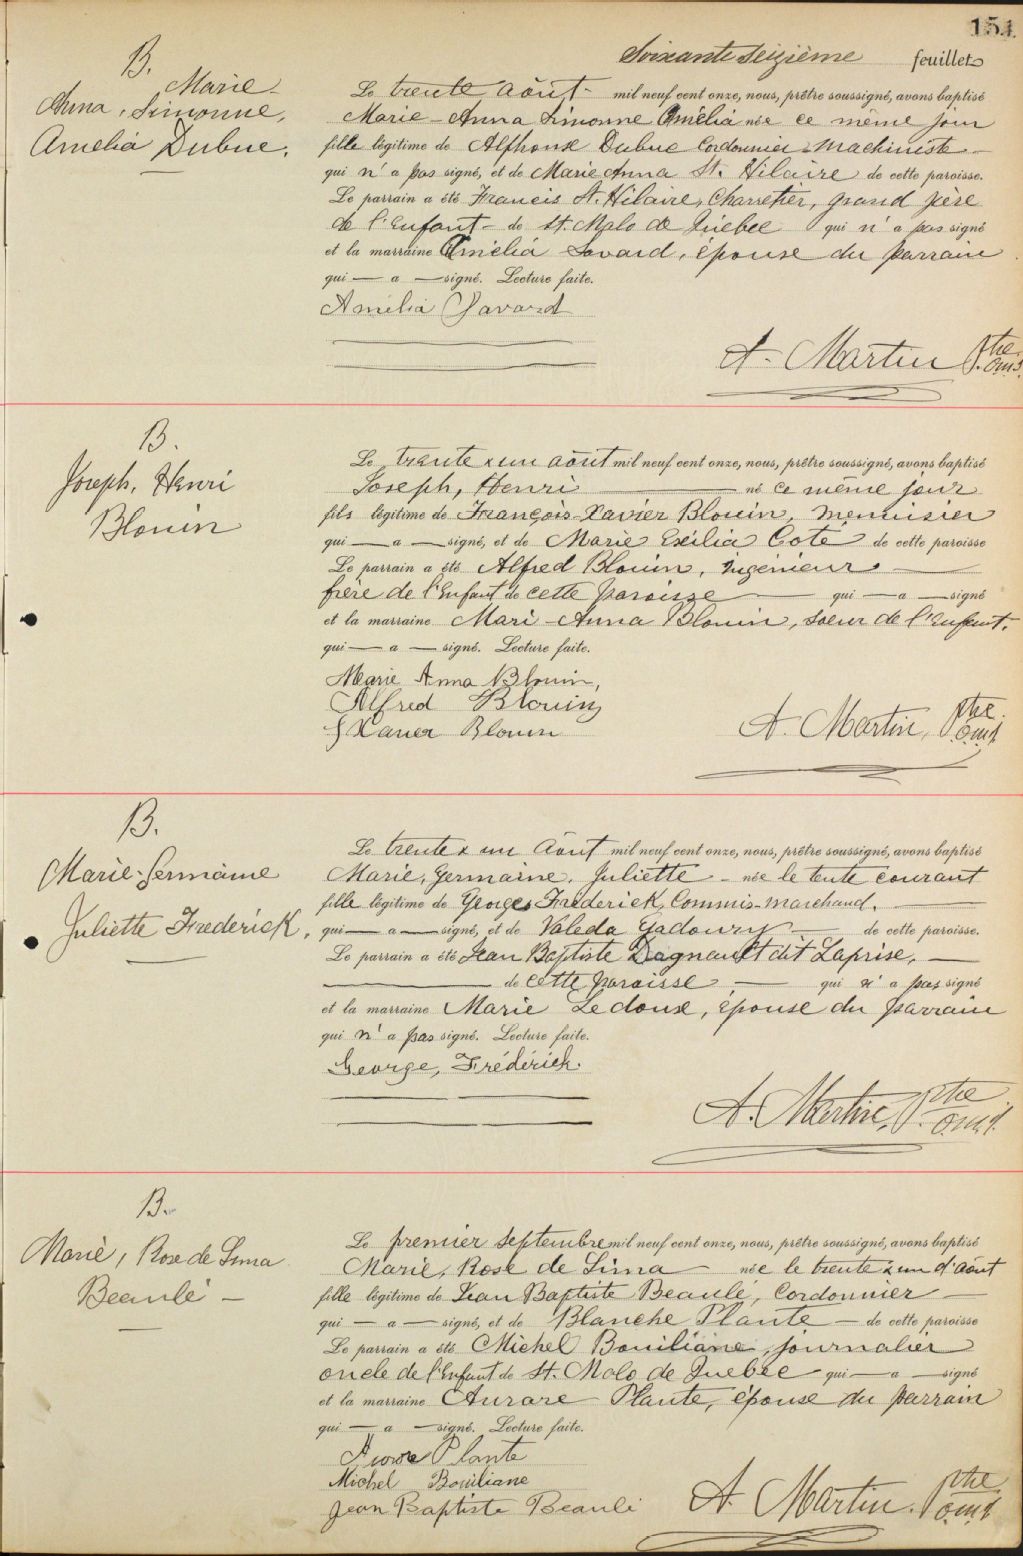 151
Soixante Seizième feuillet
B.
Marie
Anna, Simonne,
Amelia Dubuc.
Le trente Août mil neuf cent onze, nous, prêtre soussigné, avons baptisé
Marie-Anna Simonne Amélia née ce même jour
fille légitime de Alphonse Dubuc Cordonnier-machiniste
qui n'a pas signé, et de Marie Anna St. Hilaire de cette paroisse.
Le parrain a été Francis St. Hilaire, Charretier, grand père
de l'Enfant de St. Malo de Québec qui n'a pas signé
et la marraine Amélia Savard, épouse du parrain
qui — a — signé. Lecture faite.
Amélia Savard
A. Martin Ptre
o.m.i.
B.
Joseph, Henri
Blouin
Le trente & un août mil neuf cent onze, nous, prêtre soussigné, avons baptisé
Joseph, Henri né ce même jour
fils légitime de François-Xavier Blouin, menuisier
qui — a — signé, et de Marie Exilia Coté de cette paroisse
Le parrain a été Alfred Blouin, ingénieur
frère de l'Enfant de cette paroisse qui — a — signé
et la marraine Mari-Anna Blouin, soeur de l'Enfant.
qui — a — signé. Lecture faite.
Marie Anna Blouin,
Alfred Blouin
Xavier Blouin
A. Martin, ptre
o.m.i.
B.
Marie-Germaine
Juliette Frederick.
Le trente & un Août mil neuf cent onze, nous, prêtre soussigné, avons baptisé
Marie, Germaine, Juliette née le tente courant
fille légitime de Georges Frederick, Commis-marchand.
qui — a — signé, et de Valeda Gadoury de cette paroisse.
Le parrain a été Jean Baptiste Dagnault dit Laprise,
de cette paroisse qui n'a pas signé
et la marraine Marie Ledoux, épouse du parrain
qui n'a pas signé. Lecture faite.
George, Frédérick.
A. Martin, Ptre
o.m.i.
B.
Marie, Rose de Lima
Beaulé
Le premier septembre mil neuf cent onze, nous, prêtre soussigné, avons baptisé
Marie, Rose de Lima née le trente & un d'août
fille légitime de Jean Baptiste Beaulé, Cordonnier
qui — a — signé, et de Blanche Plante de cette paroisse
Le parrain a été Michel Bouiliane, journalier
oncle de l'Enfant de St. Malo de Quebec qui — a — signé
et la marraine Aurore Plante, épouse du parrain
qui — a — signé. Lecture faite.
Aurore Plante
Michel Bouiliane
Jean Baptiste Beaulé
A. Martin. Ptre
o.m.i.